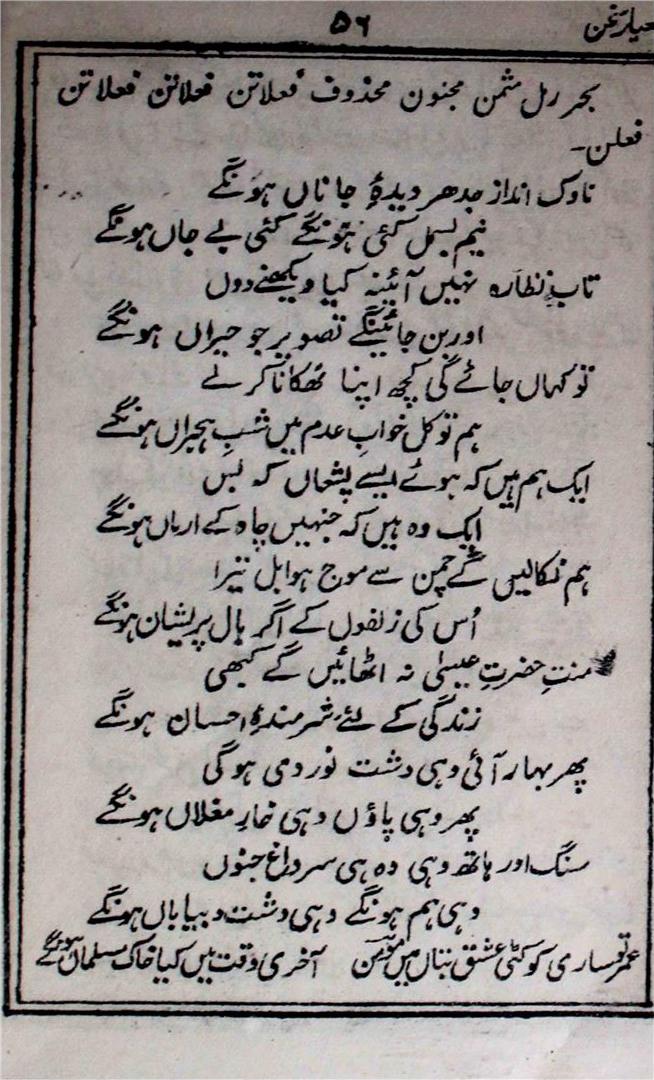 معیار سخن
۵۶
بحر رمل مثمن مجنون محذوف فعلاتن فعلاتن فعلاتن
فعلن۔
ناوک انداز جدھر دیدۂ جاناں ہونگے
نیم بسمل کئی ہونگے کئی بے جاں ہونگے
تابِ نظارہ نہیں آئینہ کیا دیکھنے دوں
اور بن جائینگے تصویر جو حیراں ہونگے
تو کہاں جائے گی کچھ اپنا ٹھکانا کرلے
ہم تو کل خوابِ عدم میں شبِ ہجراں ہونگے
ایک ہم ہیں کہ ہوئے ایسے پشیماں کہ بس
ایک وہ ہیں کہ جنہیں چاہ کے ارماں ہونگے
ہم نکالیں گے چمن سے موج ہوا بل تیرا
اُس کی زلفوں کے اگر بال پریشان ہونگے
منتِ حضرتِ عیسیٰ نہ اٹھائیں گے کبھی
زندگی کے لئے شرمندۂ احسان ہونگے
پھر بہار آئی وہی دشت نوردی ہوگی
پھر وہی پاؤں وہی خارِ مغلاں ہونگے
سنگ اور ہاتھ وہی وہ ہی سر داغ جنوں
وہی ہم ہونگے وہی دشت و بیاباں ہونگے
عمر تو ساری کٹی عشق بتاں میں مومن آخری وقت میں کیا خاک مسلمان ہونگے